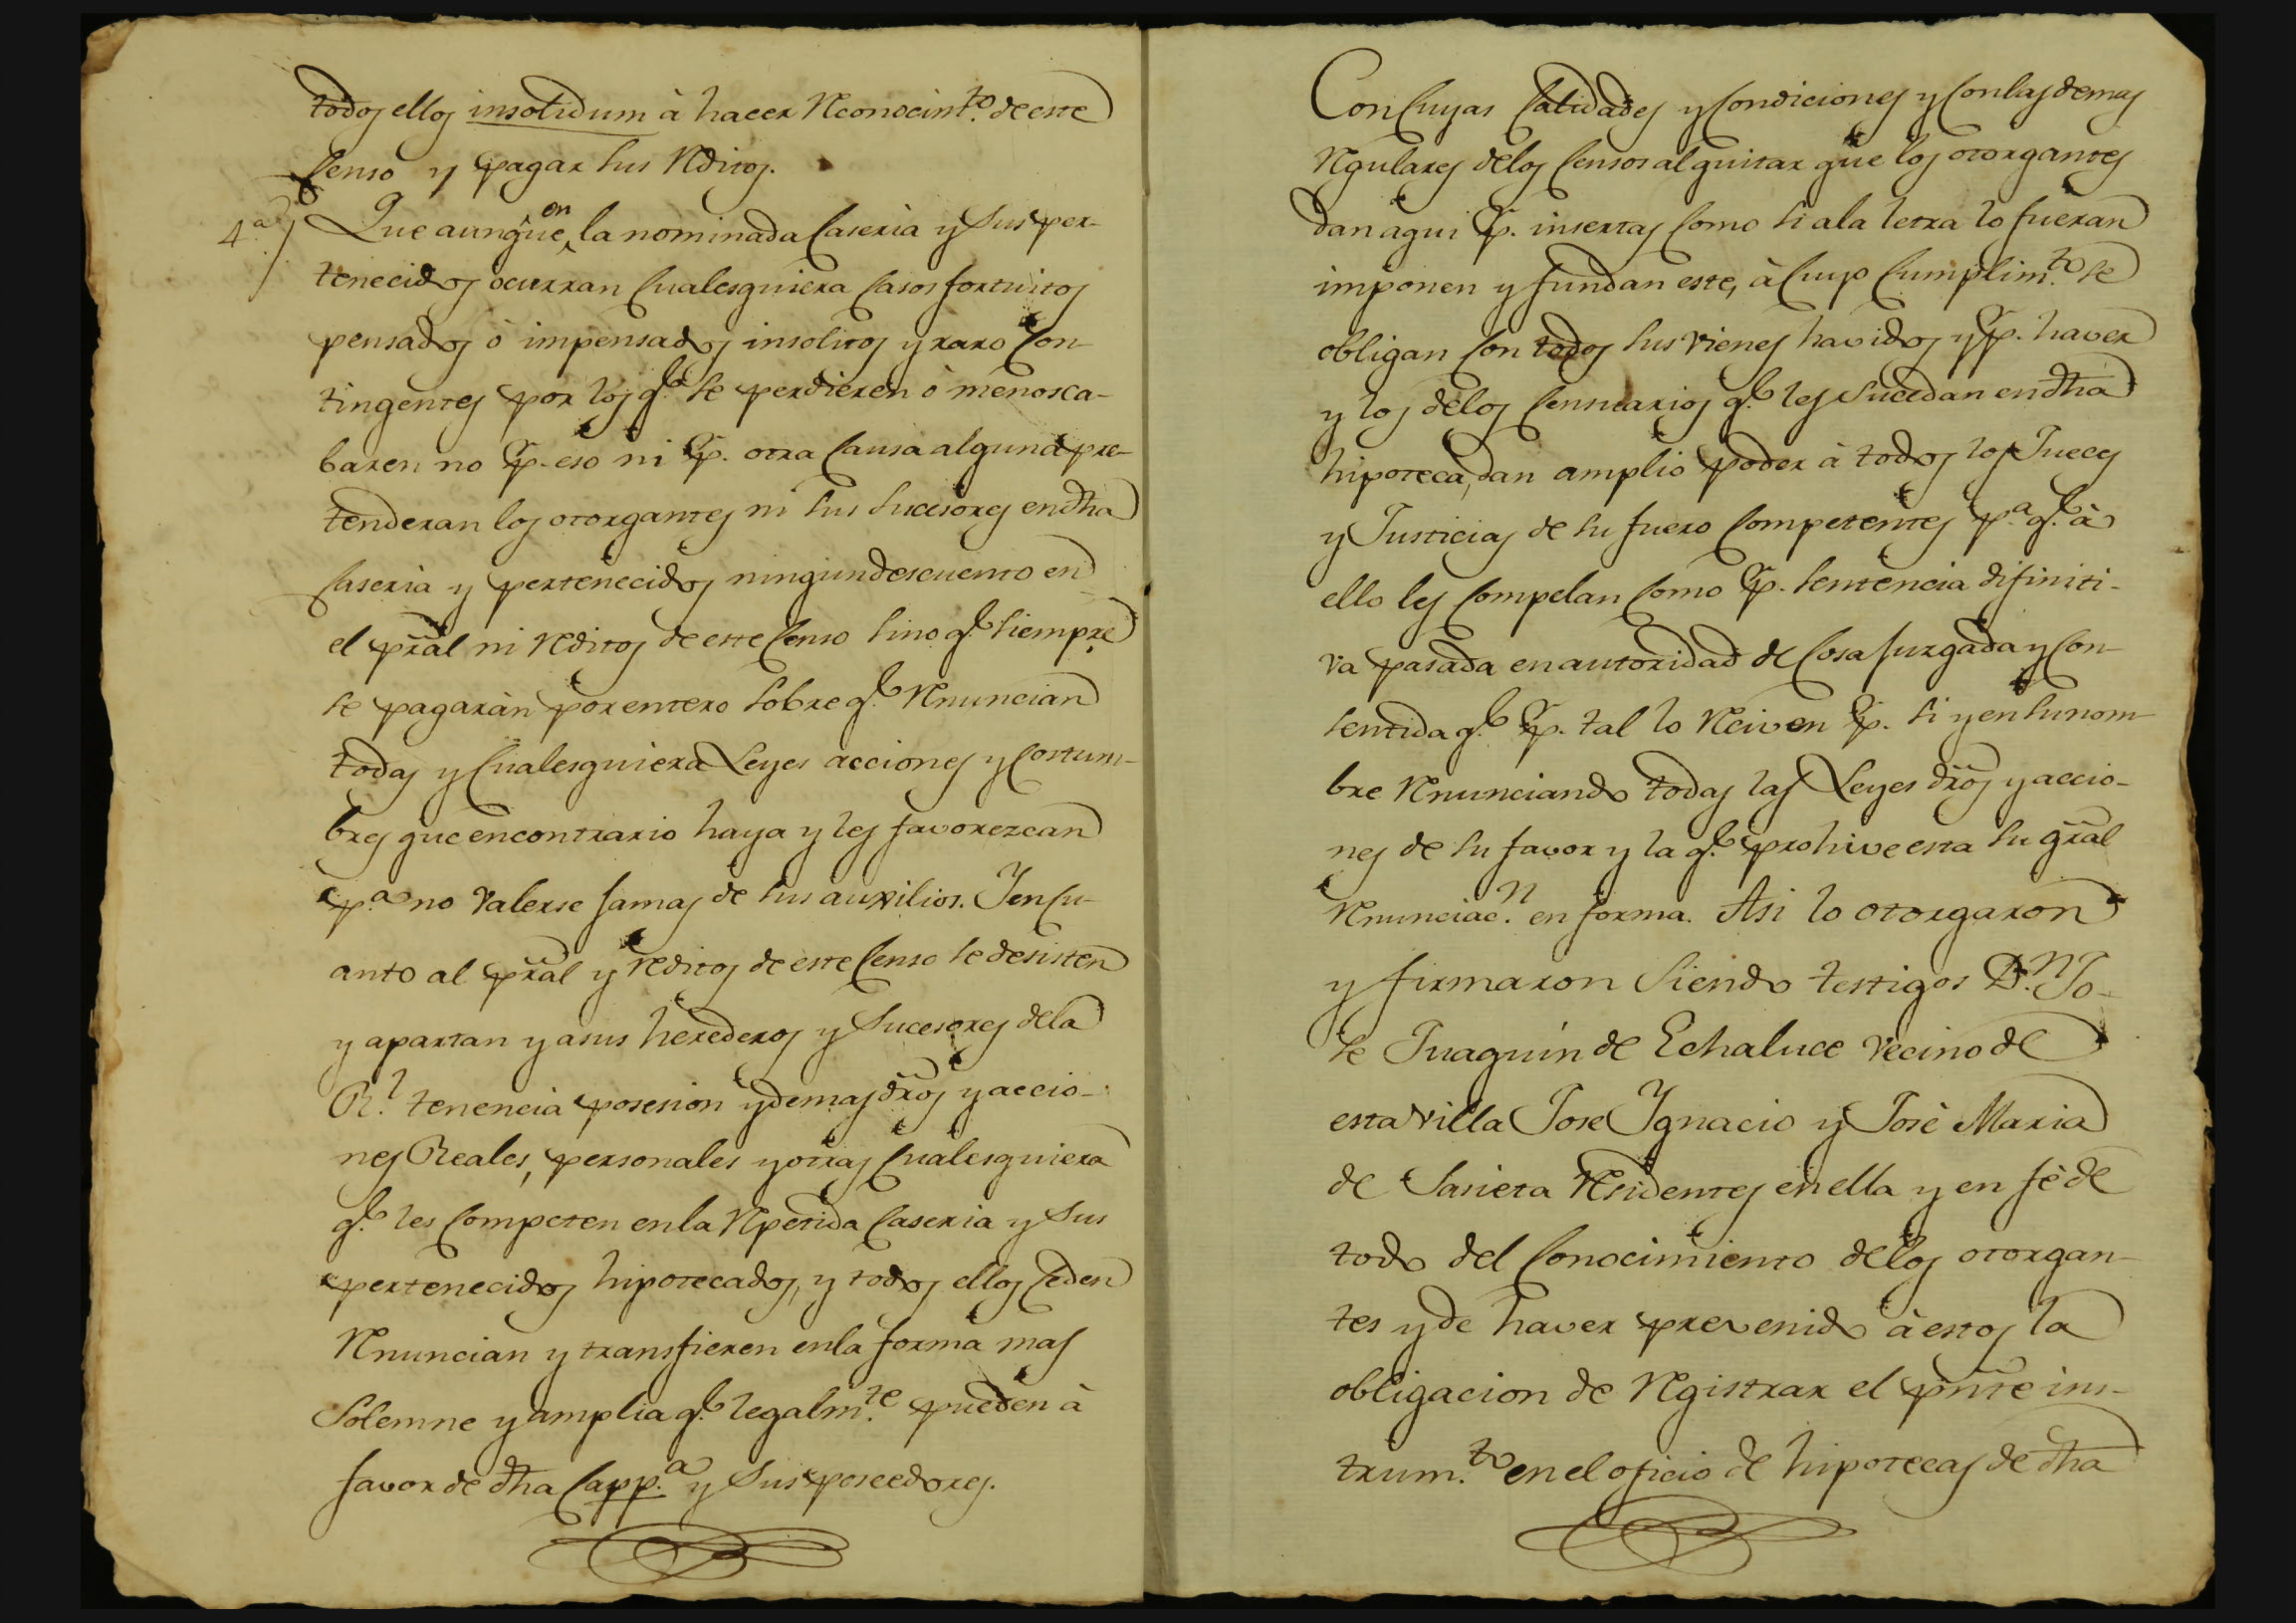 todos ellos insolidum à hacer Reconocim.to de este
Censo y pagar sus Reditos.
4.a Que aunque en la nominada Caseria y sus per-
tenecidos ocurran Cualesquiera Casos fortuitos
pensados ò impensados insolitos y raro Con-
tingentes por los q.e se perdieren ò menosca-
baren no p. eso ni p. otra Causa alguna pre-
tenderan los otorgantes ni sus sucesores en dha
Caseria y pertenecidos ningun descuento en
el pral ni reditos de este Censo sino q.e siempre
se pagaràn por entero sobre q.e Renuncian
todas y Cualesquiera Leyes acciones y Costum-
bres que en contrario haya y les favorezcan
p.a no valerse jamas de sus auxilios. Y en Cu-
anto al pral y reditos de este Censo se desisten
y apartan y a sus herederos y Sucesores de la
R.l tenencia posesion y demas dros y accio-
nes Reales, personales y otras Cualesquiera
q.e les Competen en la Repetida Caseria y sus
pertenecidos hipotecados, y todos ellos Ceden
Renuncian y transfieren en la forma mas
Solemne y amplia q.e legalm.te pueden à
favor de dha Capp.a y sus poseedores.
Con Cuyas Calidades y Condiciones y Con las demas
Regulares de los Censos al quitar que los otorgantes
dan aqui p. insertas Como si a la letra lo fueran
imponen y fundan este, à Cuyo Cumplim.to se
obligan Con todos sus vienes havidos y p. haver
y los de los Censuarios q.e les Sucedan en dha
hipoteca, dan amplio poder à todos los Jueces
y Justicias de su fuero Competentes p.a q.e à
ello les Compelan Como p. sentencia difiniti-
va pasada en autoridad de Cosa Juzgada y Con-
sentida q.e p. tal lo Reciven p. si y en su nom-
bre Renunciando todas las Leyes dros y accio-
nes de su favor y la q.e prohive esta su gral
Renunciac.n en forma. Asi lo otorgaron
y firmaron Siendo testigos D.n Jo-
se Juaquin de Echaluce vecino de
esta villa Jose Ygnacio y Josè Maria
de Sasieta Residentes en ella y en fè de
todo del Conocimiento de los otorgan-
tes y de haver prevenido à estos la
obligacion de Registrar el pnte ins-
trum.to en el oficio de hipotecas de dha